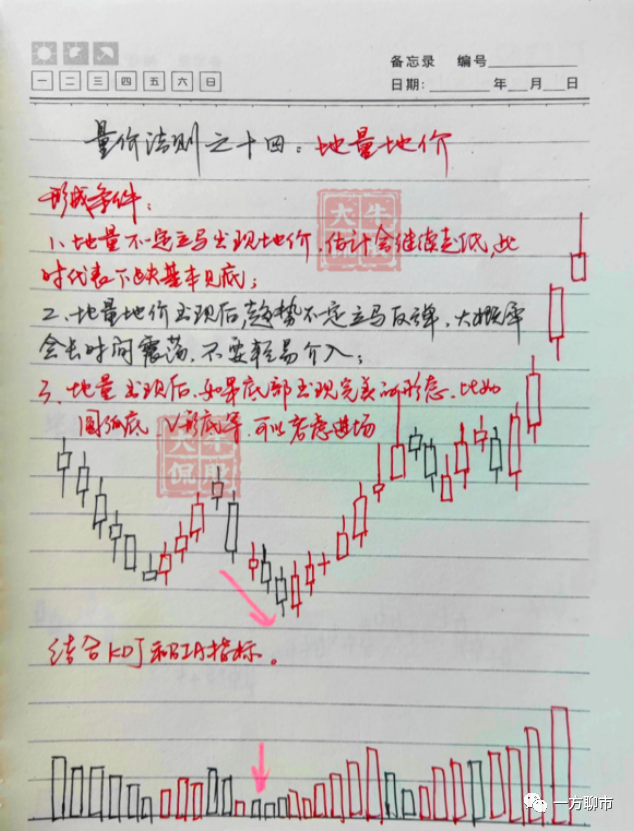 备忘录 编号
一 二 三 四 五 六 日
日期: 年 月 日
量价法则之十四：地量地价
形成条件：
1、地量不一定立马出现地价，估计会继续走低，此
时代表下跌基本见底；
2、地量地价出现后，趋势不一定立马反弹，大概率
会长时间震荡，不要轻易介入；
3、地量出现后，如果底部出现完美的形态，比如
圆弧底、V形底等，可以考虑进场
大牛
侃股
大牛
侃股
结合KDJ和BIA指标。
一方聊市